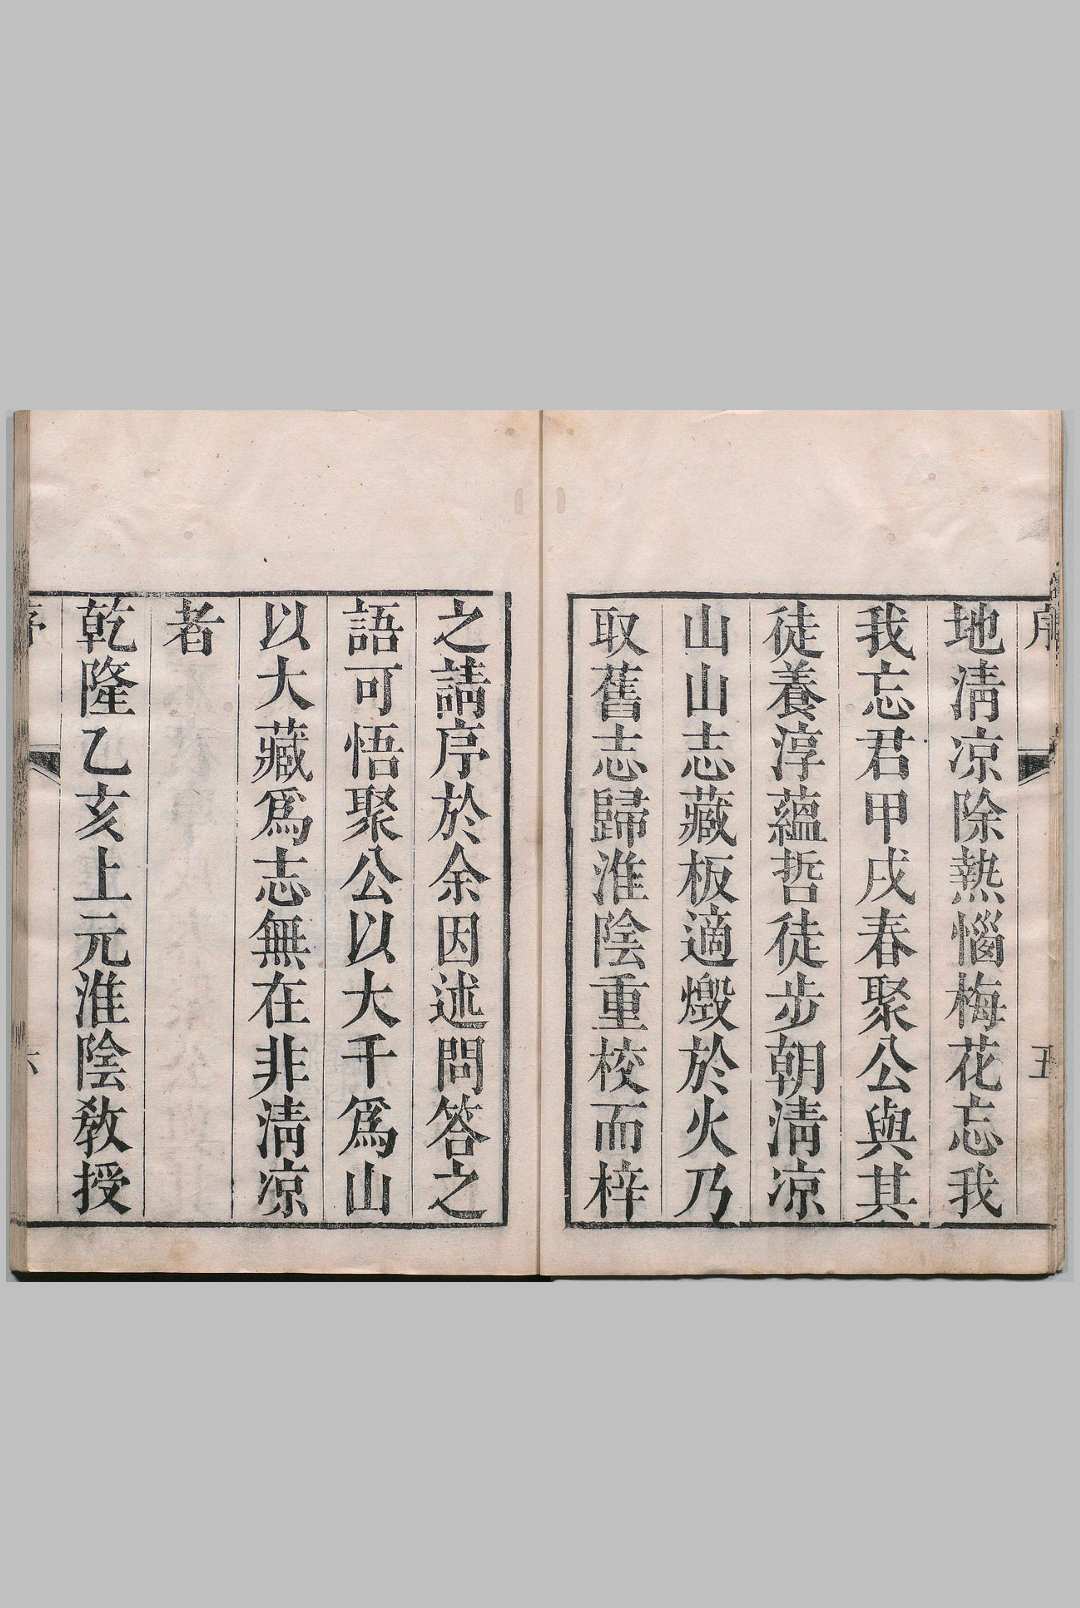 序
五
地清凉除熱惱梅花忘我
我忘君甲戌春聚公與其
徒養淳蘊哲徒步朝清凉
山山志藏板適燬於火乃
取舊志歸淮陰重校而梓
之請序於余因述問答之
語可悟聚公以大千爲山
以大藏爲志無在非清凉
者
乾隆乙亥上元淮陰敎授
序
六